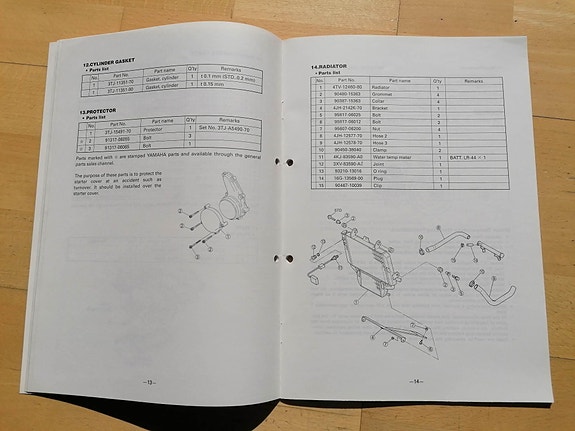 12.CYLINDER GASKET
• Parts list
No. Part No. Part name Q'ty Remarks
1 3TJ-11351-70 Gasket, cylinder 1 t 0.1 mm (STD..0.2 mm)
1 3TJ-11351-90 Gasket, cylinder 1 t 0.15 mm
13.PROTECTOR
• Parts list
No. Part No. Part name Q'ty Remarks
1 3TJ-15491-70 Protector 1 Set No. 3TJ-A5490-70
☆ 2 Bolt 3
☆ 3 Bolt 1
Parts marked with ☆ are stamped YAMAHA parts and available through the general
parts sales channel.
The purpose of these parts is to protect the
starter cover at an accident such as
turnover. It should be installed over the
starter cover.
—13—
14.RADIATOR
• Parts list
No. Part No. Part name Q'ty Remarks
1 4TV-12460-00 Radiator 1
2 Grommet 4
3 Collar 4
4 Bracket 1
5 Bolt 2
6 Bolt 2
7 Nut 4
8 4JH-12577-70 Hose 2 1
9 4JH-12578-70 Hose 3 1
10 Clamp 2
11 4KJ-83590-A0 Water temp meter 1 BATT. LR-44 × 1
12 Joint 1
13 93210-13018 O ring 1
14 Plug 1
15 90467-10039 Clip 1
—14—